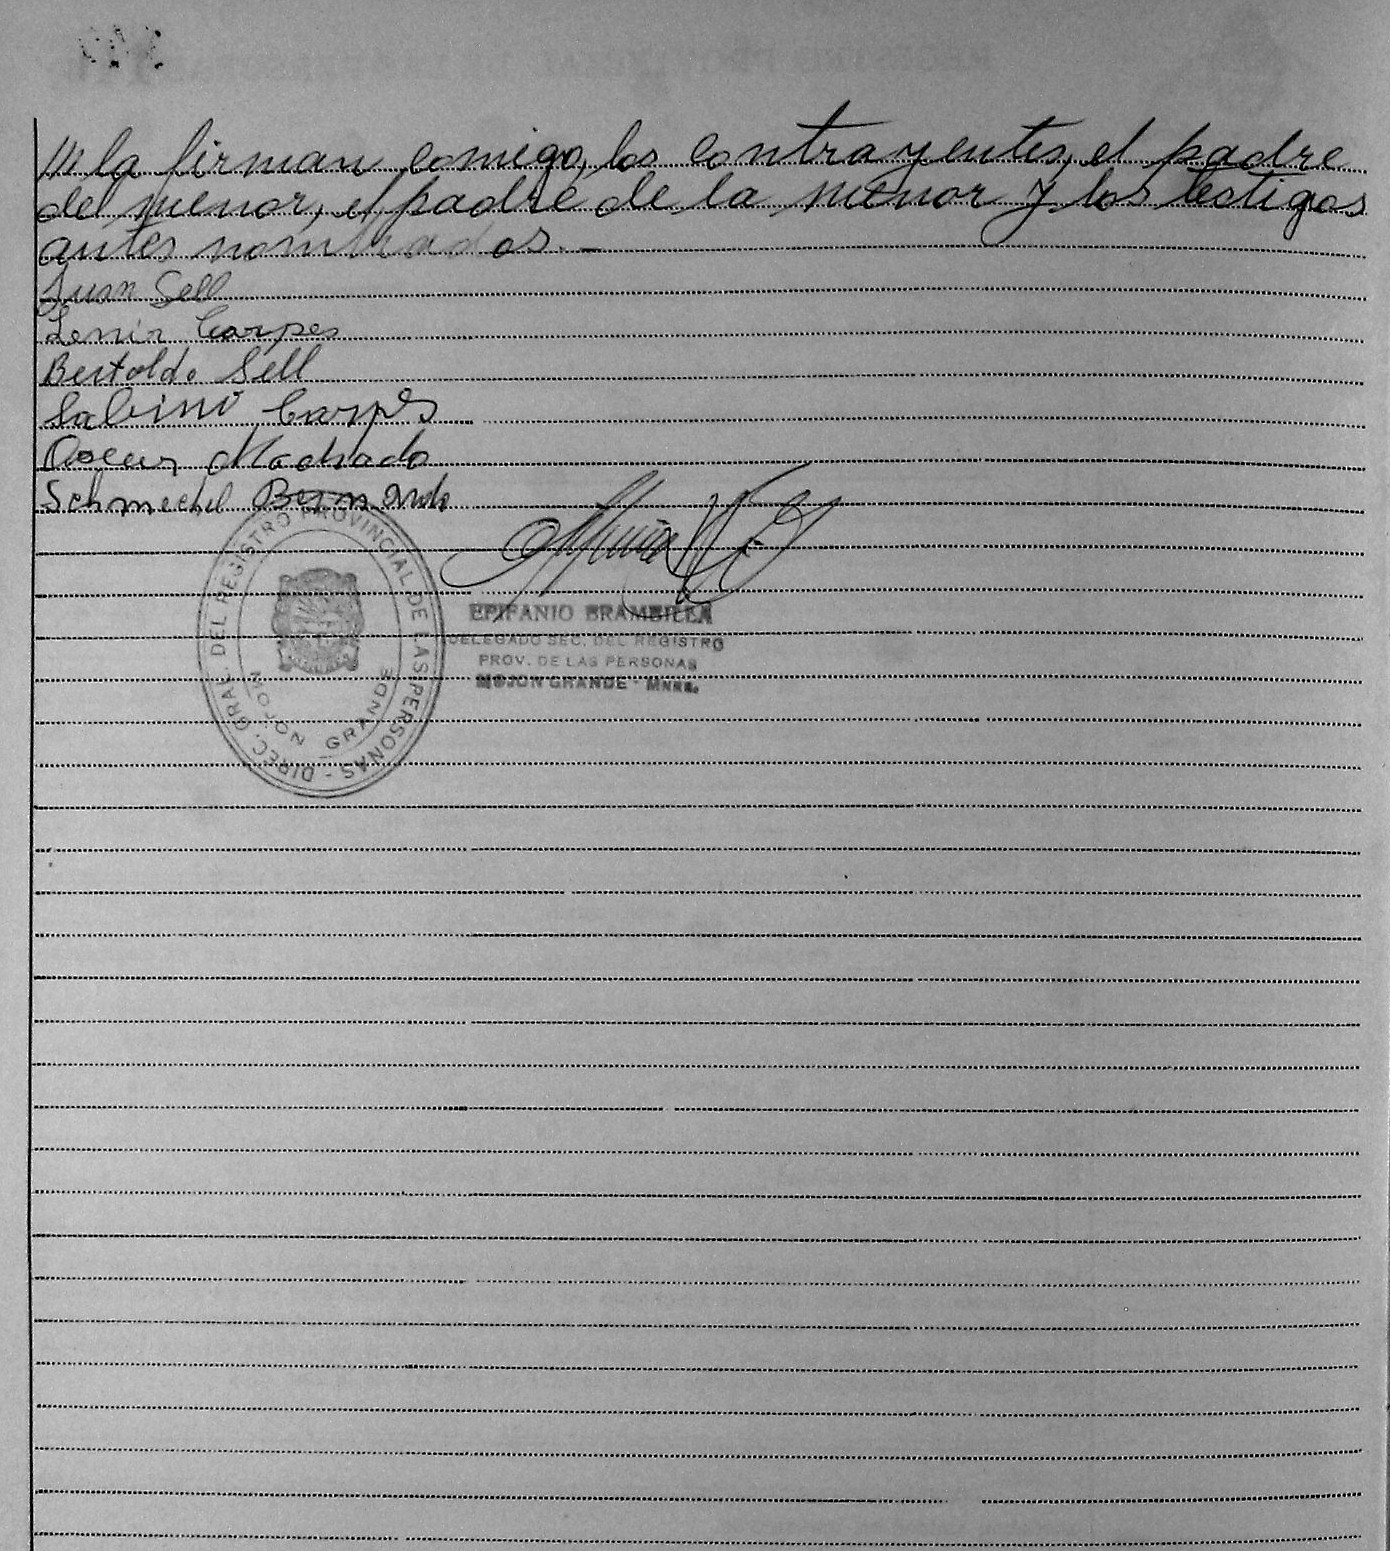 /// la firman comigo, los contrayentes, el padre
del menor, el padre de la menor y los testigos
antes nombrados. —
Juan Sell
Lenir Carpes
Bertoldo Sell
Sabino Carpes
Oscar Machado
Schmechel Bernardo
DIREC. GRAL. DEL REGISTRO PROVINCIAL DE LAS PERSONAS -
MOJON GRANDE
EPIFANIO BRAMBILLA
DELEGADO SEC. DEL REGISTRO
PROV. DE LAS PERSONAS
MOJON GRANDE - Mnes.